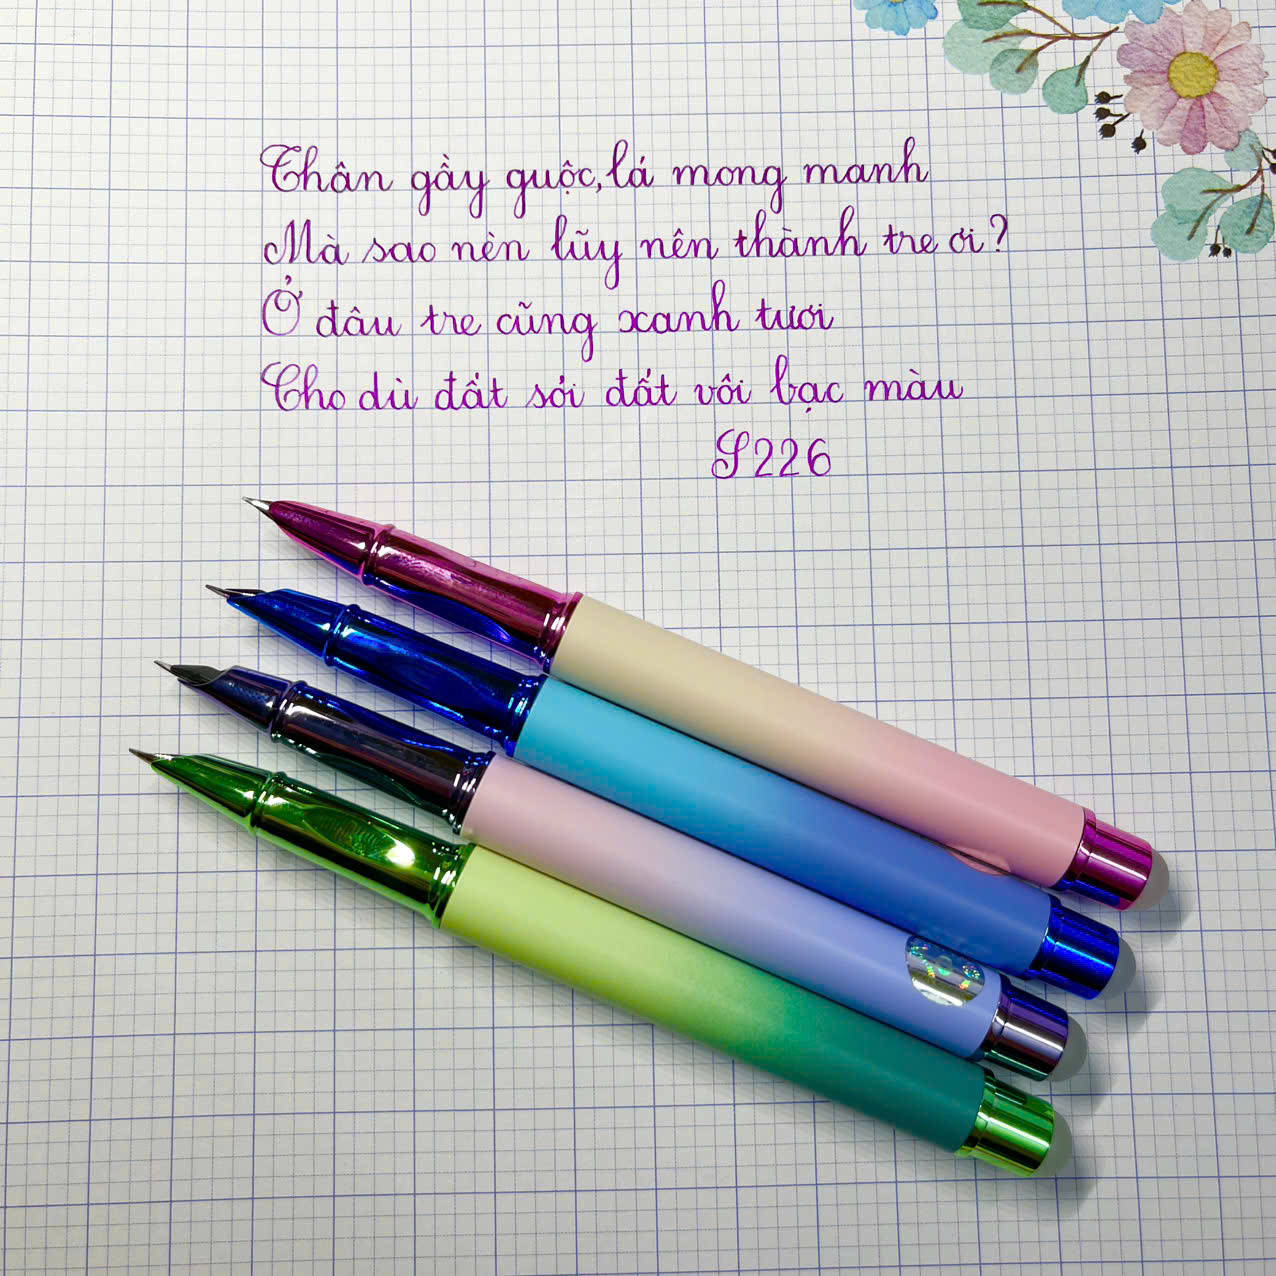 Thân gầy guộc, lá mong manh
Mà sao nên lũy nên thành tre ơi?
Ở đâu tre cũng xanh tươi
Cho dù đất sỏi đất vôi bạc màu
S226